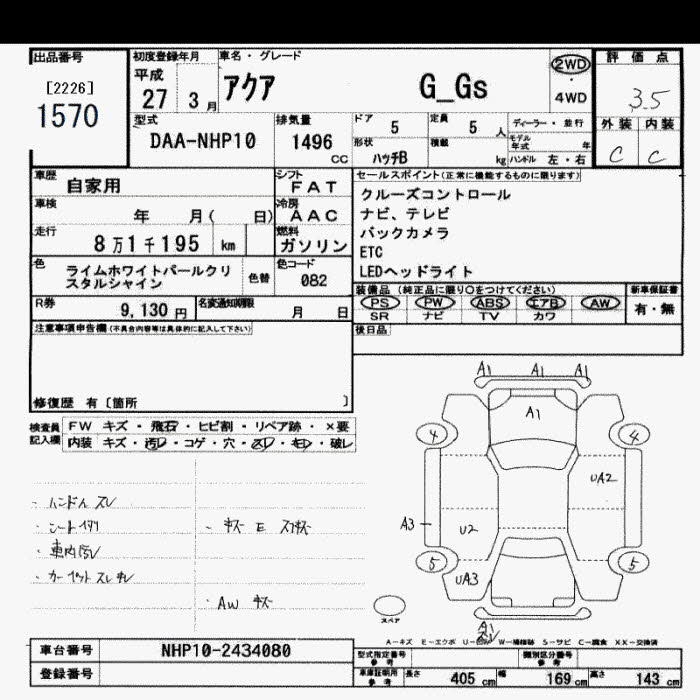 出品番号
[2226]
1570
初度登録年月
平成
27 3 月
車名・グレード
アクア G_Gs
2WD
・
4WD
評価点
3.5
外装 内装
C C
型式
DAA-NHP10
排気量
1496
CC
ドア 5
定員 5 人
ディーラー・並行
形状 ハッチB
積載 kg
モデル年式 年
ハンドル 左・右
車歴 自家用
シフト FAT
車検 年 月( 日)
冷房 AAC
走行 8万1千195 km
燃料 ガソリン
色 ライムホワイトパールクリスタルシャイン
色替
色コード 082
R券 9,130 円
名変通知期限 月 日
セールスポイント(正常に機能するものに限ります)
クルーズコントロール
ナビ、テレビ
バックカメラ
ETC
LEDヘッドライト
装備品 (純正品に限り○をつけてください)
PS PW ABS エアB AW
SR ナビ TV カワ
新車保証書
有・無
後日品
注意事項申告欄(不具合内容等は具体的に記入して下さい)
修復歴 有〔箇所 〕
検査員記入欄
FW キズ・飛石・ヒビ割・リペア跡・×要
内装 キズ・汚レ・コゲ・穴・スレ・モケ・破レ
・ハンドルスレ
・車内汚レ
・キズ E スリキズ
・AW キズ
A1 A1 A1
A1
4 4
UA2
A3
U2
5 5
UA3
A1
スペア
A-キズ E-エクボ
S-サビ C-腐食 XX-交換済
車台番号 NHP10-2434080
登録番号
型式指定番号 参考
類別区分番号 参考
車庫証明用 参考
長さ 405 cm 幅 169 cm 高さ 143 cm